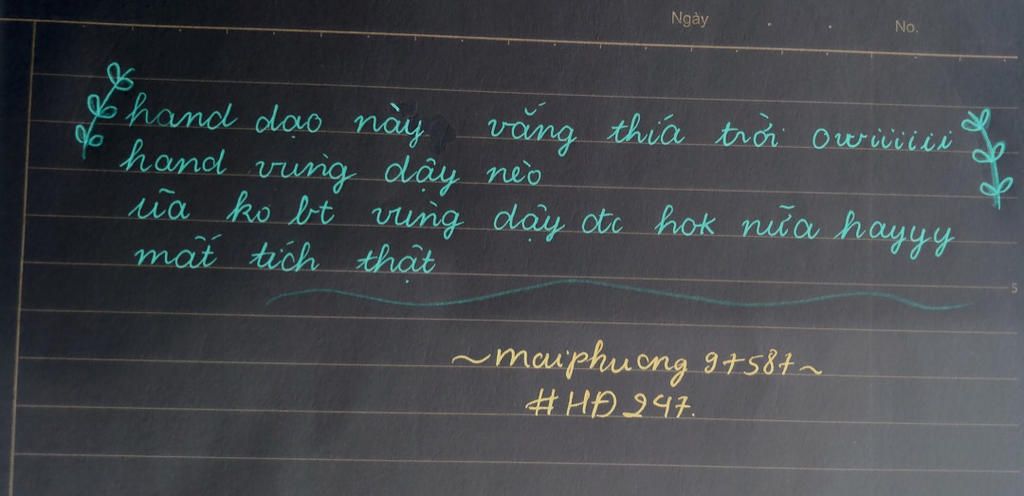 Ngày . . No.
hand dạo này vắng thía trời owiiiiii
hand vùng dậy nèo
ùa ko bt vùng dậy đc hok nữa hayyy
mất tích thật
5
~maiphuong 97587~
#HĐ247.